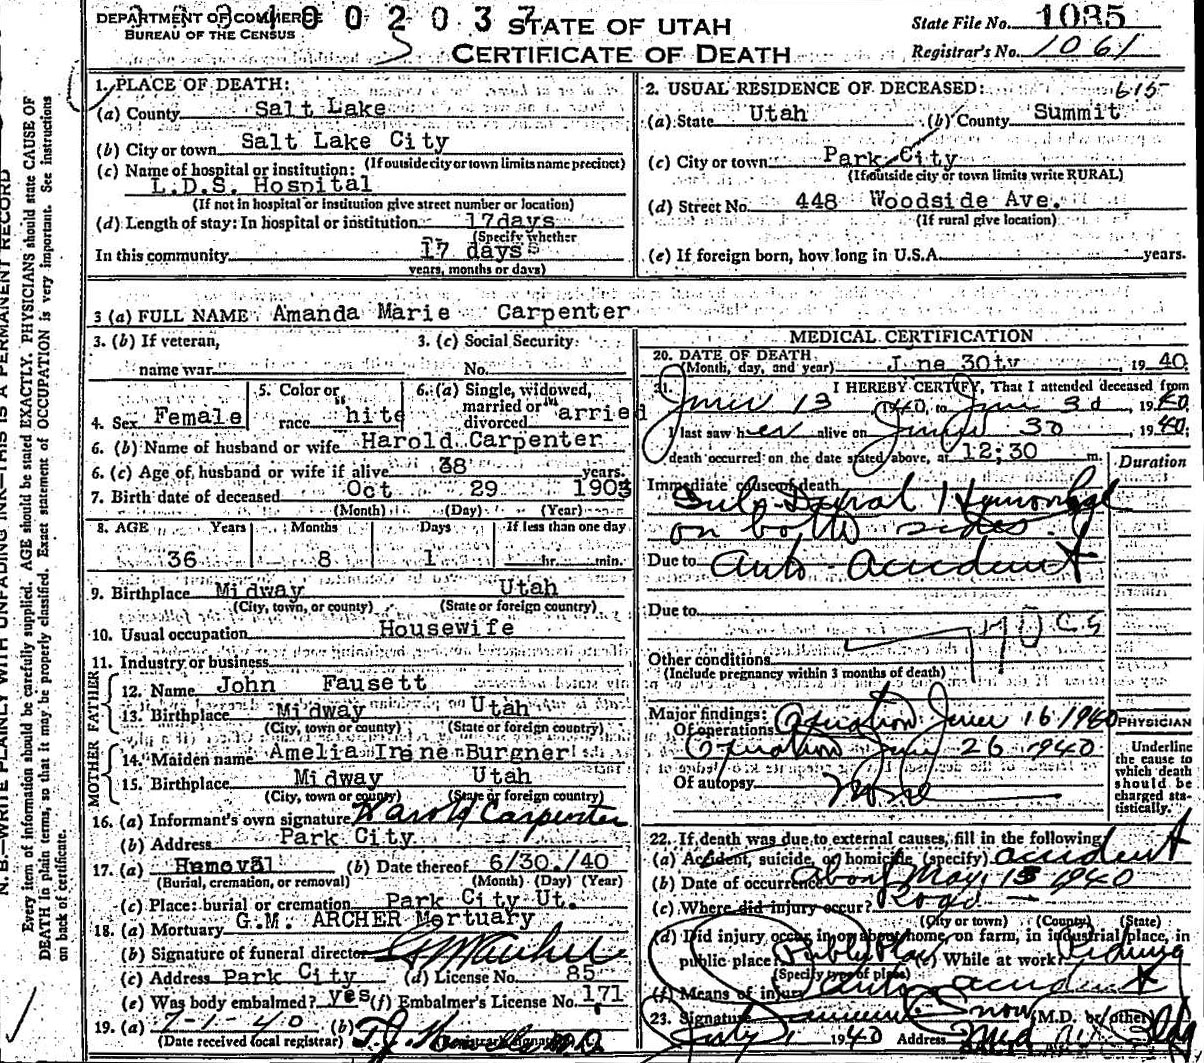 DEPARTMENT OF COMMERCE
BUREAU OF THE CENSUS
0 0 2 0 3 7
STATE OF UTAH
CERTIFICATE OF DEATH
State File No. 1035
Registrar's No. 1061
N. B.—WRITE PLAINLY WITH UNFADING INK—THIS IS A PERMANENT RECORD
Every item of information should be carefully supplied. AGE should be stated EXACTLY. PHYSICIANS should state CAUSE OF
DEATH in plain terms, so that it may be properly classified. Exact statement of OCCUPATION is very important. See instructions
on back of certificate.
1. PLACE OF DEATH:
(a) County Salt Lake
(b) City or town Salt Lake City
(If outside city or town limits name precinct)
(c) Name of hospital or institution:
L.D.S. Hospital
(If not in hospital or institution give street number or location)
(d) Length of stay: In hospital or institution 17days
(Specify whether
In this community 17 days
years, months or days)
2. USUAL RESIDENCE OF DECEASED: 615
(a) State Utah (b) County Summit
(c) City or town Park City
(If outside city or town limits write RURAL)
(d) Street No. 448 Woodside Ave.
(If rural give location)
(e) If foreign born, how long in U.S.A. years.
3 (a) FULL NAME Amanda Marie Carpenter
3. (b) If veteran,
name war
3. (c) Social Security
No.
4. Sex Female
5. Color or
race hite
6. (a) Single, widowed,
married or
divorced arried
6. (b) Name of husband or wife Harold Carpenter
6. (c) Age of husband or wife if alive 38 years.
7. Birth date of deceased Oct 29 1903
(Month) (Day) (Year)
8. AGE Years Months Days If less than one day
36 8 1 hr. min.
9. Birthplace Midway Utah
(City, town, or county) (State or foreign country)
10. Usual occupation Housewife
11. Industry or business
FATHER
12. Name John Fausett
13. Birthplace Midway Utah
(City, town, or county) (State or foreign country)
MOTHER
14. Maiden name Amelia Irene Burgner
15. Birthplace Midway Utah
(City, town or county) (State or foreign country)
16. (a) Informant's own signature Harold Carpenter
(b) Address Park City
17. (a) Removal (b) Date thereof 6/30./40
(Burial, cremation, or removal) (Month) (Day) (Year)
(c) Place: burial or cremation Park City Ut.
18. (a) Mortuary G.M. ARCHER Mortuary
(b) Signature of funeral director
(c) Address Park City (d) License No. 85
(e) Was body embalmed? yes (f) Embalmer's License No. 171
19. (a) 7-1-40 (b)
(Date received local registrar)
MEDICAL CERTIFICATION
20. DATE OF DEATH
(Month, day, and year) J ne 30ty 19 40
21. I HEREBY CERTIFY, That I attended deceased from
June 13 1940, to June 30 1940
I last saw her alive on June 30, 1940;
death occurred on the date stated above, at 12:30 m.
Duration
Immediate cause of death
Sub-Dural Hemorrhage
on both sides.
Due to auto-accident
Due to
Other conditions
(Include pregnancy within 3 months of death)
Major findings:
Of operations Operation June 16 1940
Operation June 26 1940
Of autopsy None
PHYSICIAN
Underline
the cause to
which death
should be
charged sta-
tistically.
22. If death was due to external causes, fill in the following:
(a) Accident, suicide, or homicide (specify) accident
(b) Date of occurrence About May 13 1940
(c) Where did injury occur? Road
(City or town) (County) (State)
(d) Did injury occur in or about home, on farm, in industrial place, in
public place? Public Place While at work? Riding
(Specify type of place)
(f) Means of injury auto accident
23. Signature Snow (M.D. or other)
July 1 1940 Address